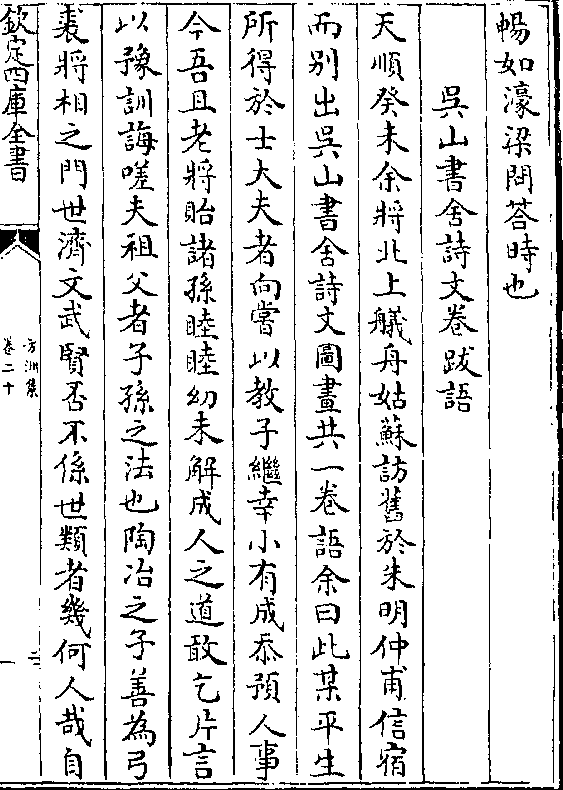 暢如濠梁問答時也
吳山書舍詩文卷跋語
天順癸未余將北上艤舟姑蘇訪舊於朱明仲甫信宿
而别出吳山書舍詩文圖畫共一卷語余曰此某平生
所得於士大夫者向嘗以教子繼幸小有成忝預人事
今吾且老將貽諸孫睦睦幼未解成人之道敢乞片言
以豫訓誨嗟夫祖父者子孫之法也陶冶之子善為弓
裘將相之門世濟文武賢否不係世類者幾何人哉自
欽定四庫全書
方洲集
卷二十